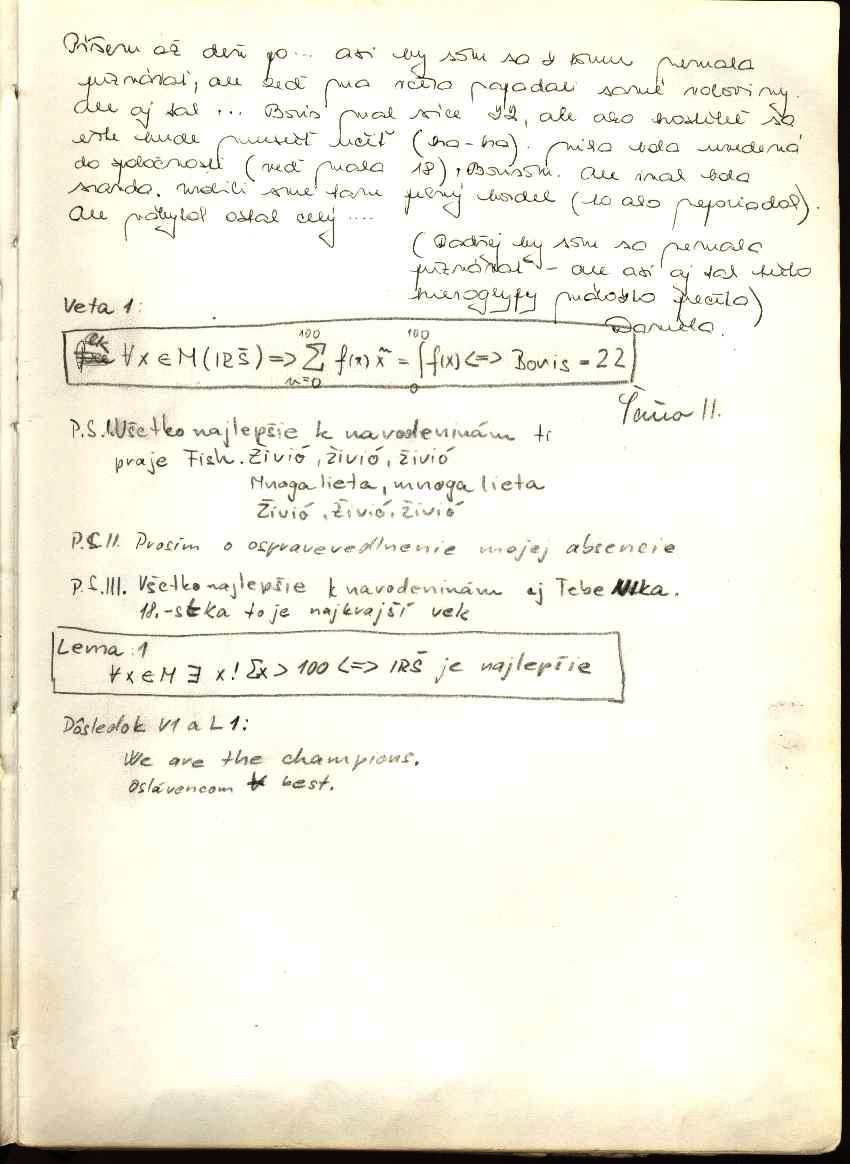 Píšem až deň po... asi by som sa k tomu nemala
priznávať, ale keď ma všetci požiadali samé voloviny.
ale aj tak ... Boris mal síce 22, ale ako hostiteľ sa
ešte bude musieť učiť (ha-ha). bola uvedená
do spoločnosti (veď mala 18) Borisom. Ale inak bola
sranda. urobili sme tam plný bordel (to ako neporiadok).
Ale nábytok ostal celý ....
(Radšej by som sa nemala
priznávať - ale asi aj tak tieto
hieroglyfy málokto prečíta)
Daniela.
Veta 1:
∀x ∈ M (IRŠ) => 100 ∑ n=0 f(x) x^n = 100 ∫ 0 f(x) <=> Boris = 22
II.
P.S.I. Všetko najlepšie k navodeninám ti
praje Fish. Živió, živió, živió
Mnoga lieta, mnoga lieta
Živió, Živió, živió
P.S.II. Prosím o ospravevedlnenie mojej absencie
P.S.III. Všetko najlepšie k navodeninám aj Tebe Nika.
18.-stka to je najkrajší vek
Lema 1
∀x ∈ M ∃ x! ∑x > 100 <=> IRŠ je najlepšie
Dôsledok V1 a L1:
We are the champions.
Oslávencom best.